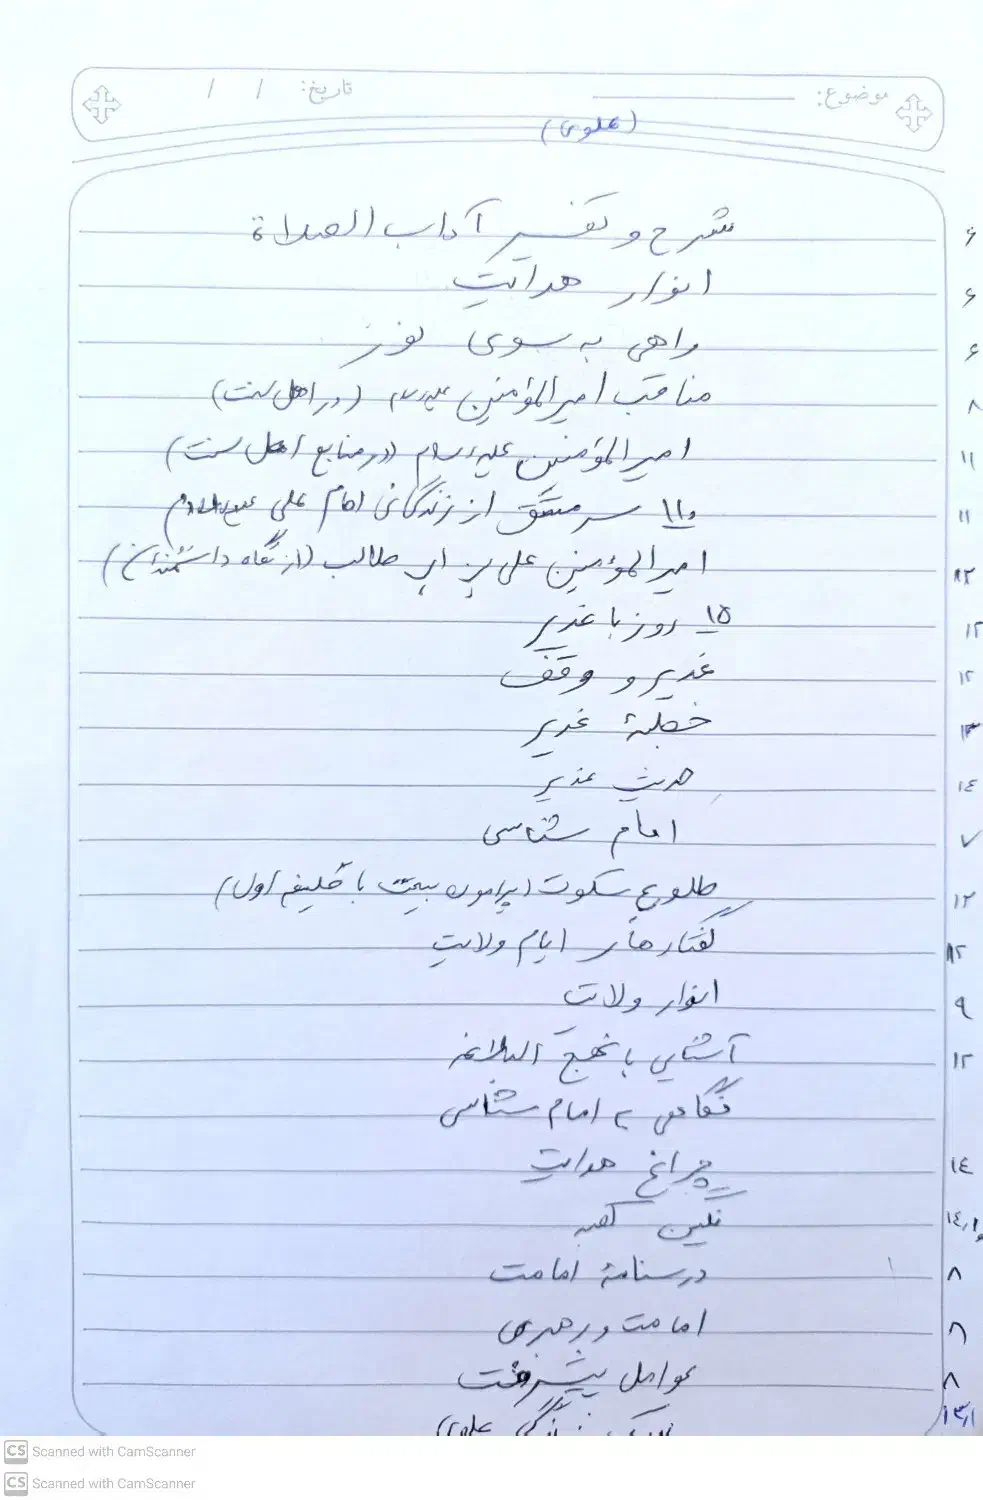 موضوع: تاریخ: / /
(علوی)
۶ شرح و تفسیر آداب الصلاة
۶ انوار هدایت
۶ راهی به سوی نور
۸ مناقب امیرالمؤمنین علیه‌السلام (در اهل سنت)
۱۱ امیرالمؤمنین علیه‌السلام (در منابع اهل سنت)
۱۱ سرمشق از زندگانی امام علی علیه‌السلام
۱۲ امیرالمؤمنین علی بن ابی طالب (از نگاه دانشمندان)
۱۲ ۱۵ روز با غدیر
۱۲ غدیر و وقف
۱۳ خطبهٔ غدیر
۱٤ حدیث غدیر
۷ امام شناسی
۱۲ طلوع سکوت (پیرامون بیعت با خلیفه اول)
۱۲ گفتارهای ایام ولایت
۹ انوار ولایت
۱۲ آشنایی با نهج البلاغه
نگاهی به امام شناسی
۱٤ چراغ هدایت
نگین کعبه
۸ درسنامهٔ امامت
۸ امامت و رهبری
۸ عوامل پیشرفت
زندگی علوی
CS Scanned with CamScanner
CS Scanned with CamScanner